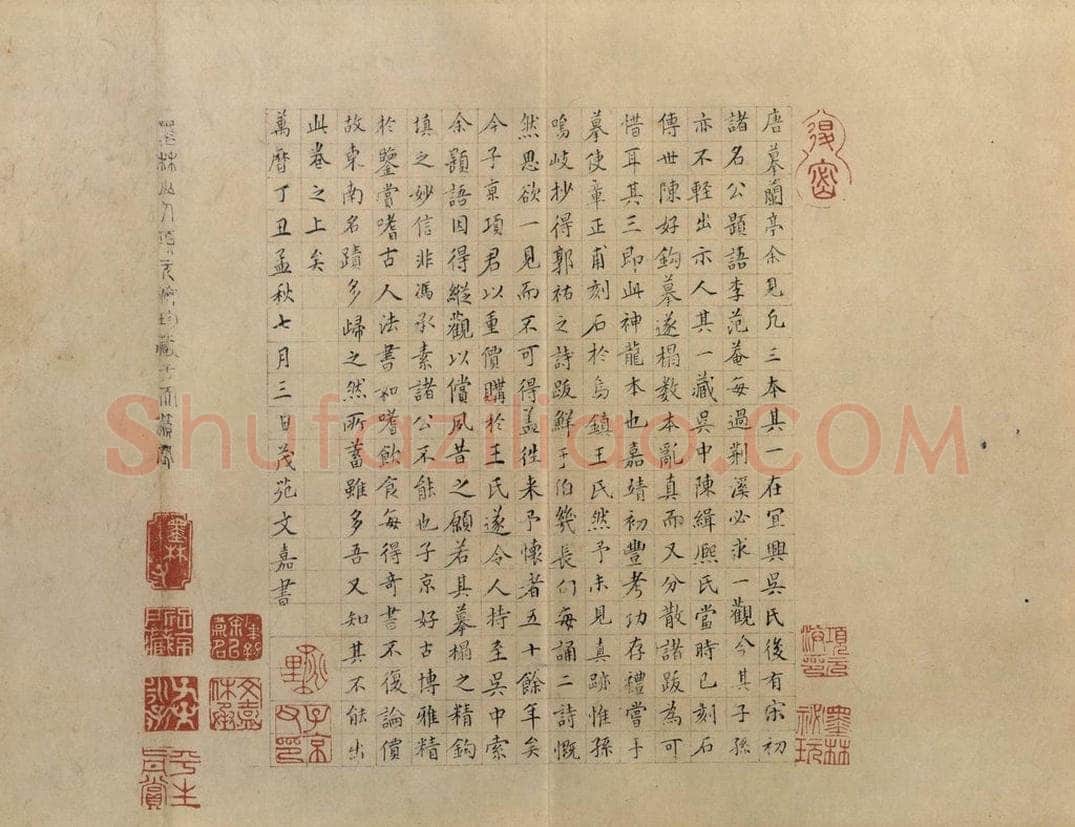 唐摹蘭亭余見凡三本其一在宜興吳氏後有宋初
諸名公題語李范菴每過荆溪必求一觀今其子孫
亦不輕出示人其一藏吳中陳緝熙氏當時已刻石
傳世陳好鈎摹遂搨數本亂真而又分散諸跋為可
惜耳其三即此神龍本也嘉靖初豐考功存禮嘗手
摹使章正甫刻石於烏鎮王氏然予未見真跡惟孫
鳴岐抄得郭祐之詩跋鮮于伯幾長句每誦二詩慨
然思欲一見而不可得盖徃来予懷者五十餘年矣
今子京項君以重價購於王氏遂令人持至吳中索
余題語因得縱觀以償夙昔之願若其摹搨之精鈎
填之妙信非馮承素諸公不能也子京好古博雅精
於鑒賞嗜古人法書如嗜飲食每得奇書不復論價
故東南名蹟多歸之然所蓄雖多吾又知其不能出
此卷之上矣
萬曆丁丑孟秋七月三日茂苑文嘉書
墨林
項元
汴印
墨林
祕玩
子京
平生
真賞
文嘉
休承
Shufaziliao.COM